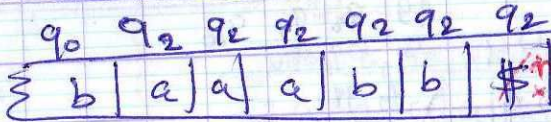 q0 q2 q2 q2 q2 q2 q2
b | a | a | a | b | b | $